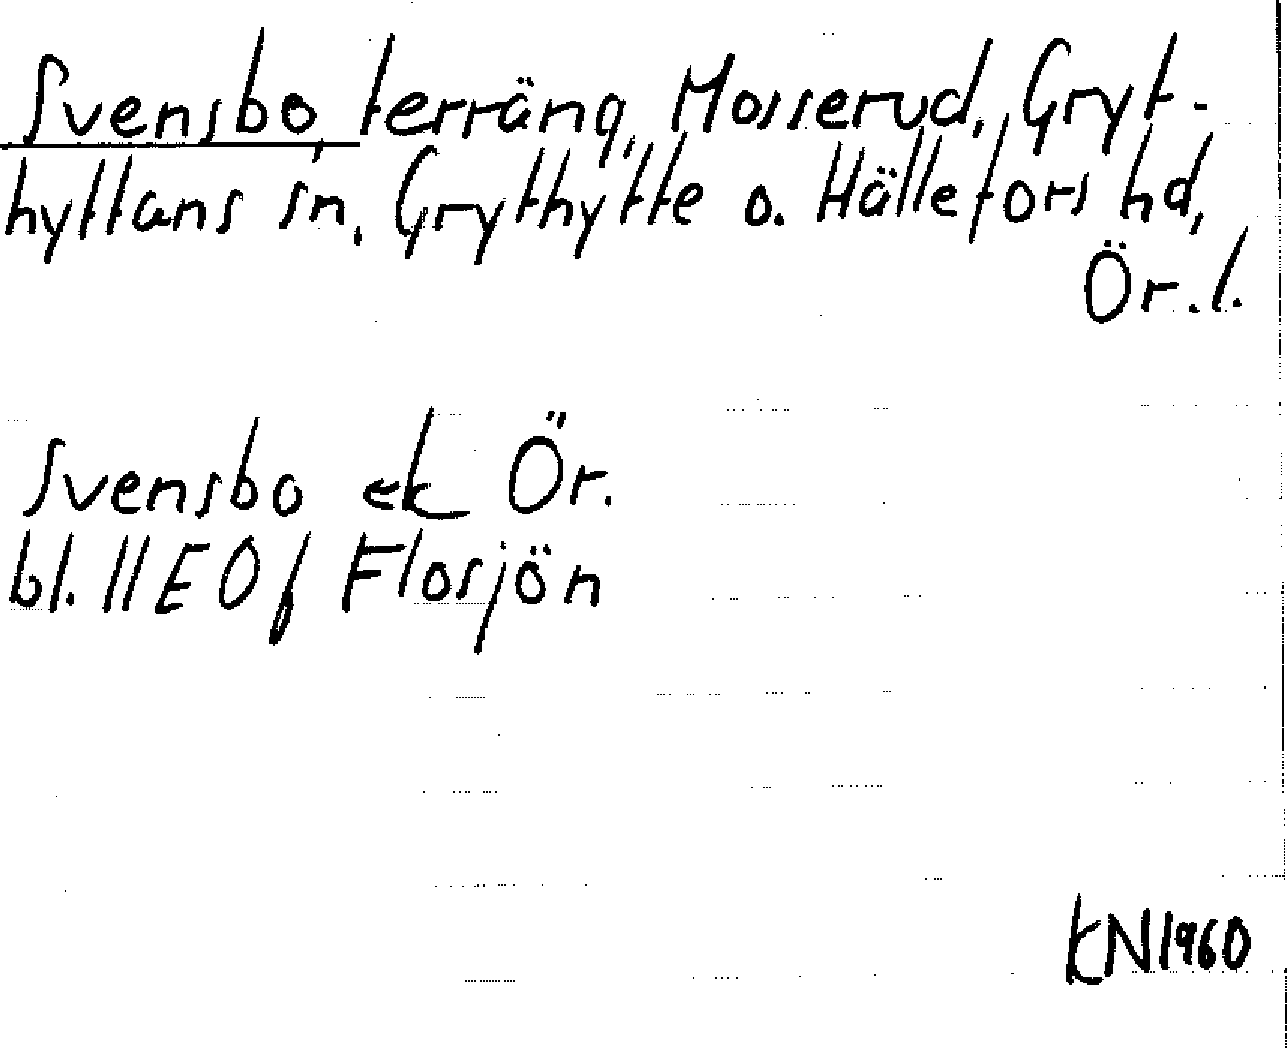 Svensbo, terräng, Mosserud, Gryt-
hyttans sn. Grythytte o. Hällefors hd,
Ör. l.
Svensbo ek Ör.
bl. 11E 0f Flosjön
KN 1960